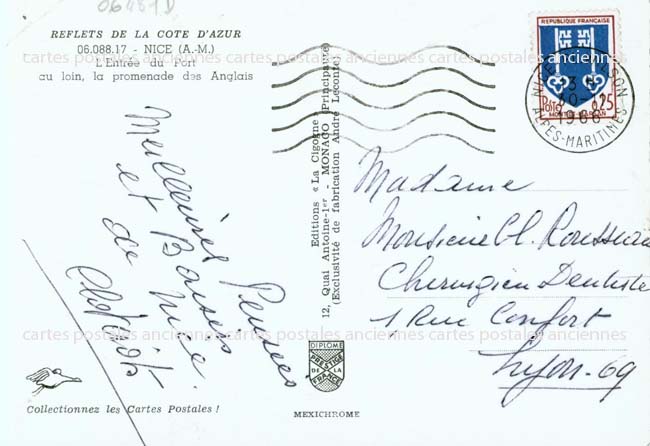 06481D
REFLETS DE LA COTE D'AZUR
06.088.17 - NICE (A.-M.)
L'Entrée du Port
au loin, la promenade des Anglais
Meilleures Pensées
et Baisers
de Nice.
Collectionnez les Cartes Postales !
Editions « La Cigogne »
12, Quai Antoine-1er - MONACO (Principauté)
(Exclusivité de fabrication André Leconte)
DIPLOME
PRESTIGE
DE LA
FRANCE
MEXICHROME
REPUBLIQUE FRANÇAISE
POSTES
0,25
MONT-DE-MARSAN
NICE
1968
ALPES-MARITIMES
Madame
Monsieur Cl. Rousseau
Chirurgien Dentiste
1 Rue Confort
Lyon - 69
cartes postales anciennes cartes postales anciennes cartes postales anciennes
cartes postales anciennes cartes postales anciennes cartes postales anciennes